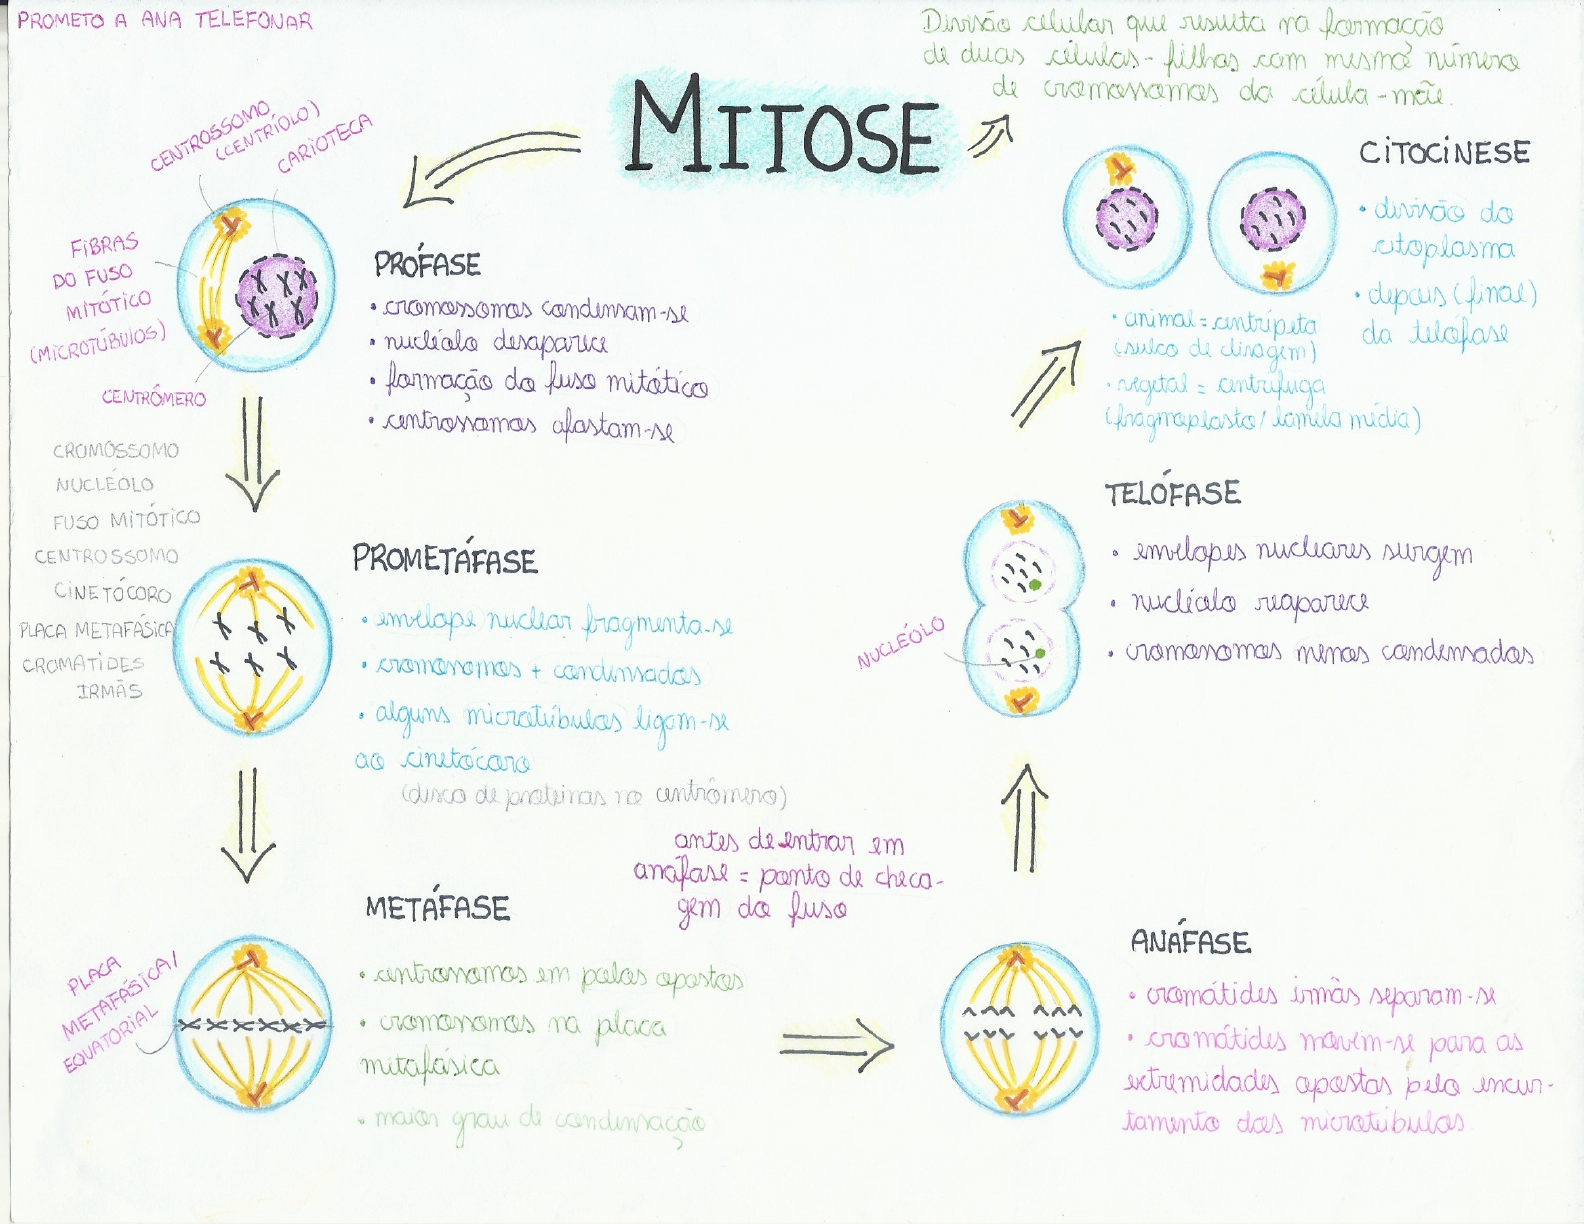 PROMETO A ANA TELEFONAR
Divisão celular que resulta na formação
de duas células-filhas com mesmo número
de cromossomos da célula-mãe.
MITOSE
CENTROSSOMO
(CENTRÍOLO)
CARIOTECA
FIBRAS
DO FUSO
MITÓTICO
(MICROTÚBULOS)
CENTRÔMERO
PRÓFASE
• cromossomos condensam-se
• nucléolo desaparece
• formação do fuso mitótico
• centrossomos afastam-se
CROMOSSOMO
NUCLÉOLO
FUSO MITÓTICO
CENTROSSOMO
CINETÓCORO
PLACA METAFÁSICA
CROMÁTIDES
IRMÃS
PROMETÁFASE
• envelope nuclear fragmenta-se
• cromossomos + condensados
• alguns microtúbulos ligam-se
ao cinetócoro
(disco de proteínas no centrômero)
METÁFASE
• centrossomos em polos opostos
• cromossomos na placa
metafásica
• maior grau de condensação
PLACA
METAFÁSICA/
EQUATORIAL
antes de entrar em
anáfase = ponto de checa-
gem do fuso
ANÁFASE
• cromátides irmãs separam-se
• cromátides movem-se para as
extremidades opostas pelo encur-
tamento dos microtúbulos.
TELÓFASE
• envelopes nucleares surgem
• nucléolo reaparece
• cromossomos menos condensados
NUCLÉOLO
CITOCINESE
• divisão do
citoplasma
• depois (final)
da telófase
• animal = centrípeta
(sulco de clivagem)
• vegetal = centrífuga
(fragmoplasto/lamela média)